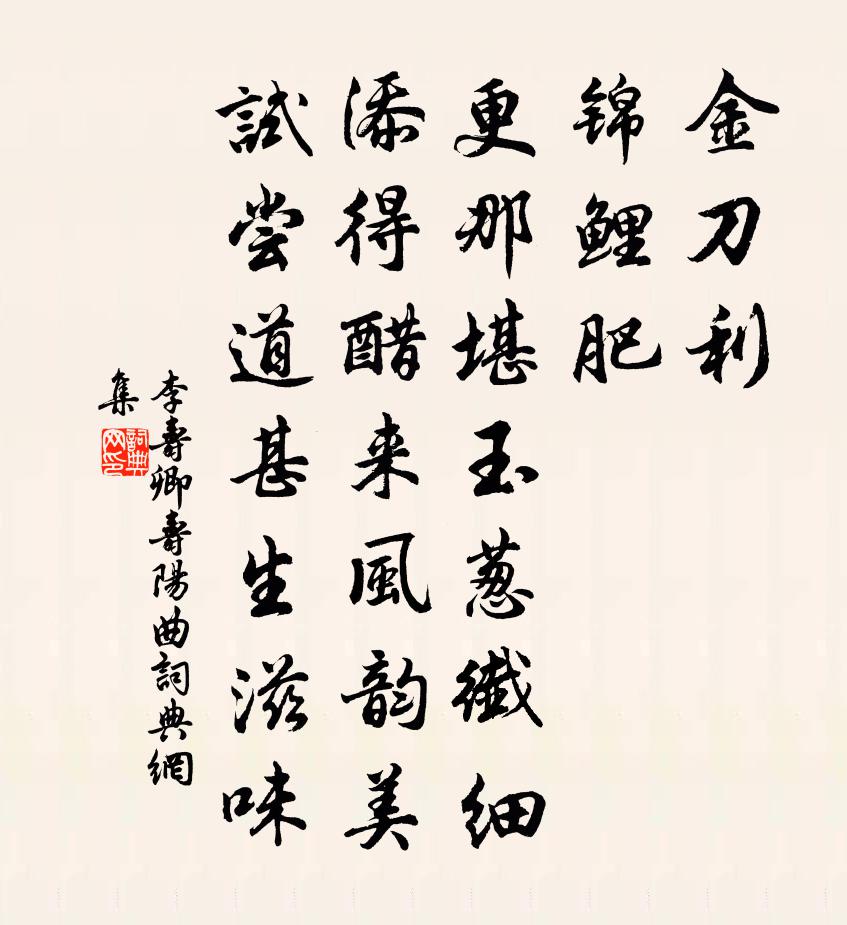 金刀利
锦鲤肥
更那堪玉葱纖细
添得醋来風韵美
試尝道甚生滋味
李壽卿壽陽曲詞典網
集
詞典
网印